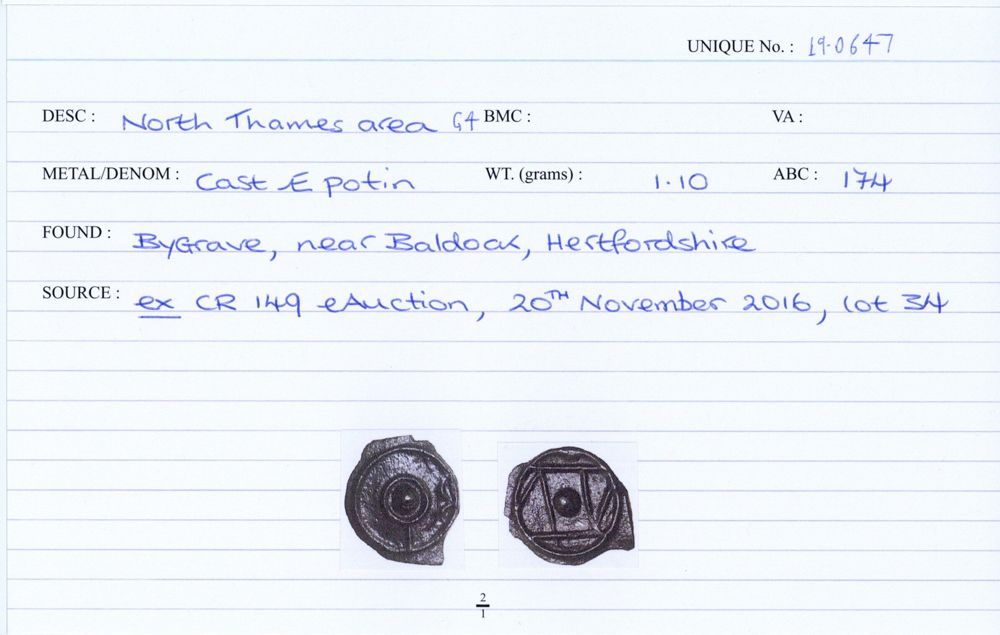 UNIQUE No. : 19-0647
DESC : North Thames area G4 BMC : VA :
METAL/DENOM : Cast Æ potin WT. (grams) : 1.10 ABC : 174
FOUND : ByGrave, near Baldock, Hertfordshire
SOURCE : ex CR 149 eAuction, 20TH November 2016, lot 34
2
1